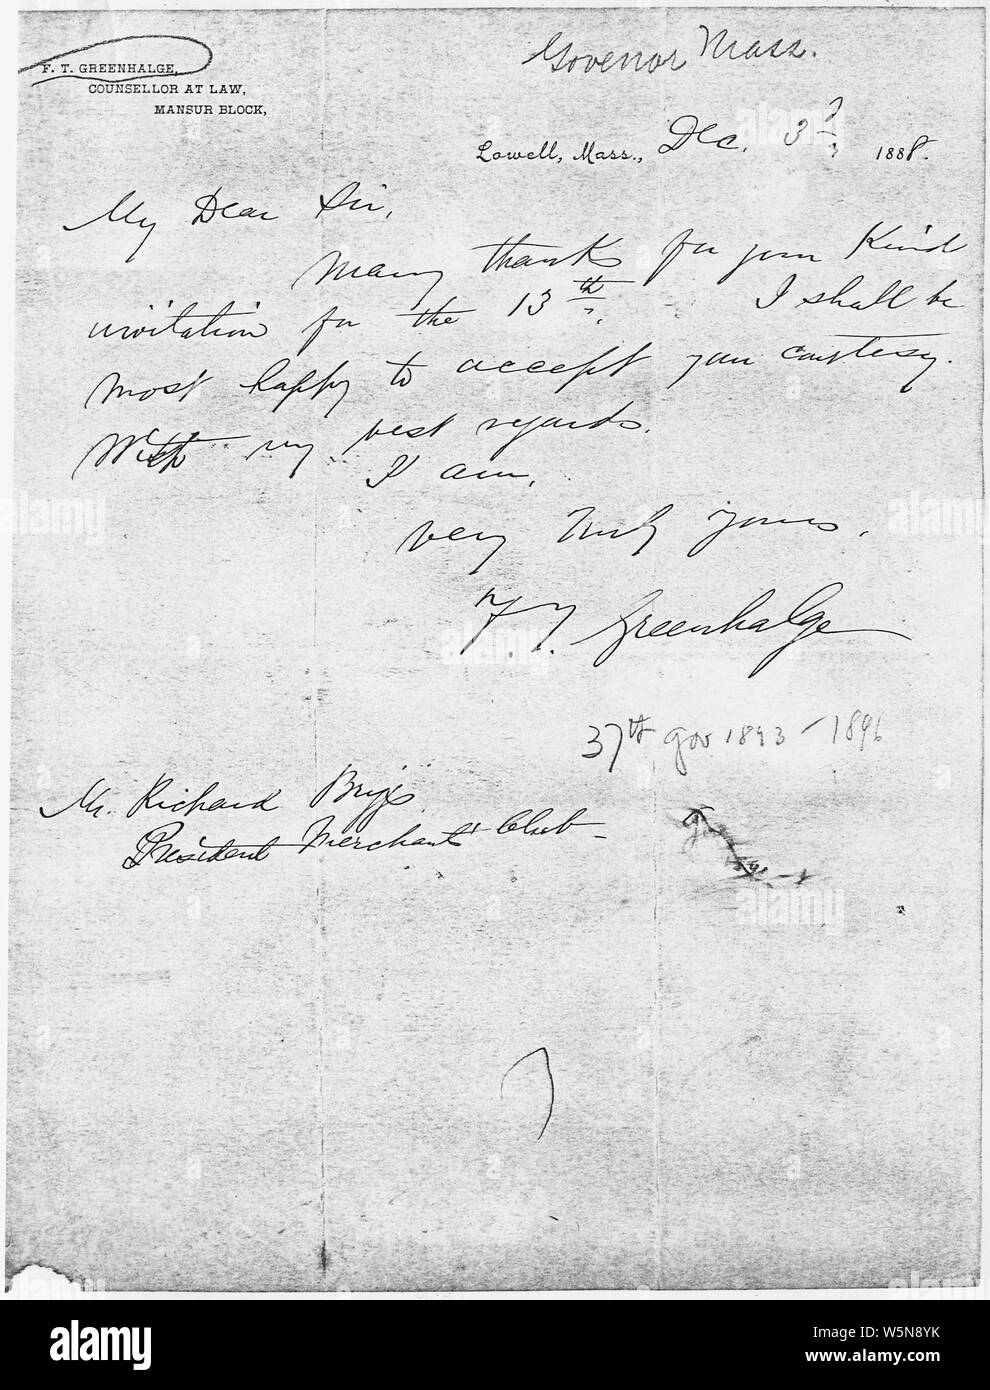 Govenor Mass.
F. T. GREENHALGE,
COUNSELLOR AT LAW,
MANSUR BLOCK,
Lowell, Mass., Dec. 3 1888.
My Dear Sir,
Many thanks for your kind
invitation for the 13th. I shall be
most happy to accept your courtesy.
With my best regards.
I am,
Very truly yours,
F. T. Greenhalge
37th gov 1893-1896
Mr. Richard Briggs
President Merchants' Club-
alamy
alamy
Image ID: W5N8YK
www.alamy.com